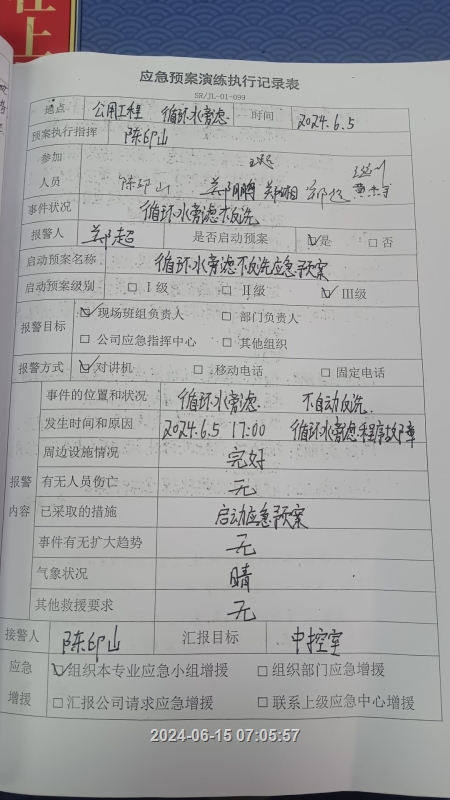 上
应急预案演练执行记录表
SR/JL-01-099
地点 公用工程 循环水旁滤 时间 2024.6.5
预案执行指挥 陈印山
参加
人员 陈印山 郑鹏
事件状况 循环水旁滤不反洗
报警人 郑超 是否启动预案 ☑是 □否
启动预案名称 循环水旁滤不反洗应急预案
启动预案级别 □ Ⅰ级 □ Ⅱ级 ☑ Ⅲ级
报警目标 ☑现场班组负责人 □ 部门负责人
□ 公司应急指挥中心 □ 其他组织
报警方式 ☑对讲机 □ 移动电话 □ 固定电话
报警内容
事件的位置和状况 循环水旁滤. 不自动反洗.
发生时间和原因 2024.6.5 17:00 循环水旁滤程序故障
周边设施情况 完好
有无人员伤亡 无
已采取的措施 启动应急预案
事件有无扩大趋势 无
气象状况 晴
其他救援要求 无
接警人 陈印山 汇报目标 中控室
应急 ☑组织本专业应急小组增援 □组织部门应急增援
增援 □汇报公司请求应急增援 □联系上级应急中心增援
2024-06-15 07:05:57